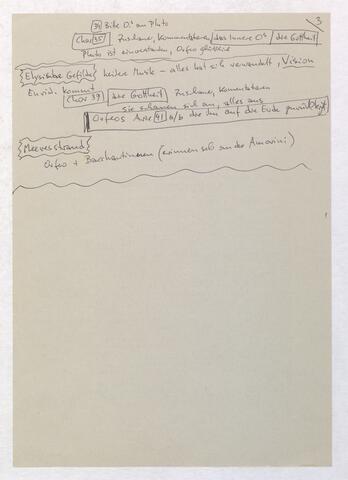 3
34 Bitte O.s an Pluto
Chor 35 Zuschauer, Kommentatoren / das Innere O.s / die Gottheit
Pluto ist einverstanden, Orfeo glückliche
Elysische Gefilde heidere Musik – alles hat sich verwandelt, Vision
Eurid. kommt
Chor 39 / die Gottheit Zuschauer, Kommentatoren
sie schauen sich an, alles aus
Orfeos Arie 41 a/b die ihn auf die Erde zurückbringt
Meeresstrand
Orfeo + Bacchantinnen (erinnern sich an der Amorini)